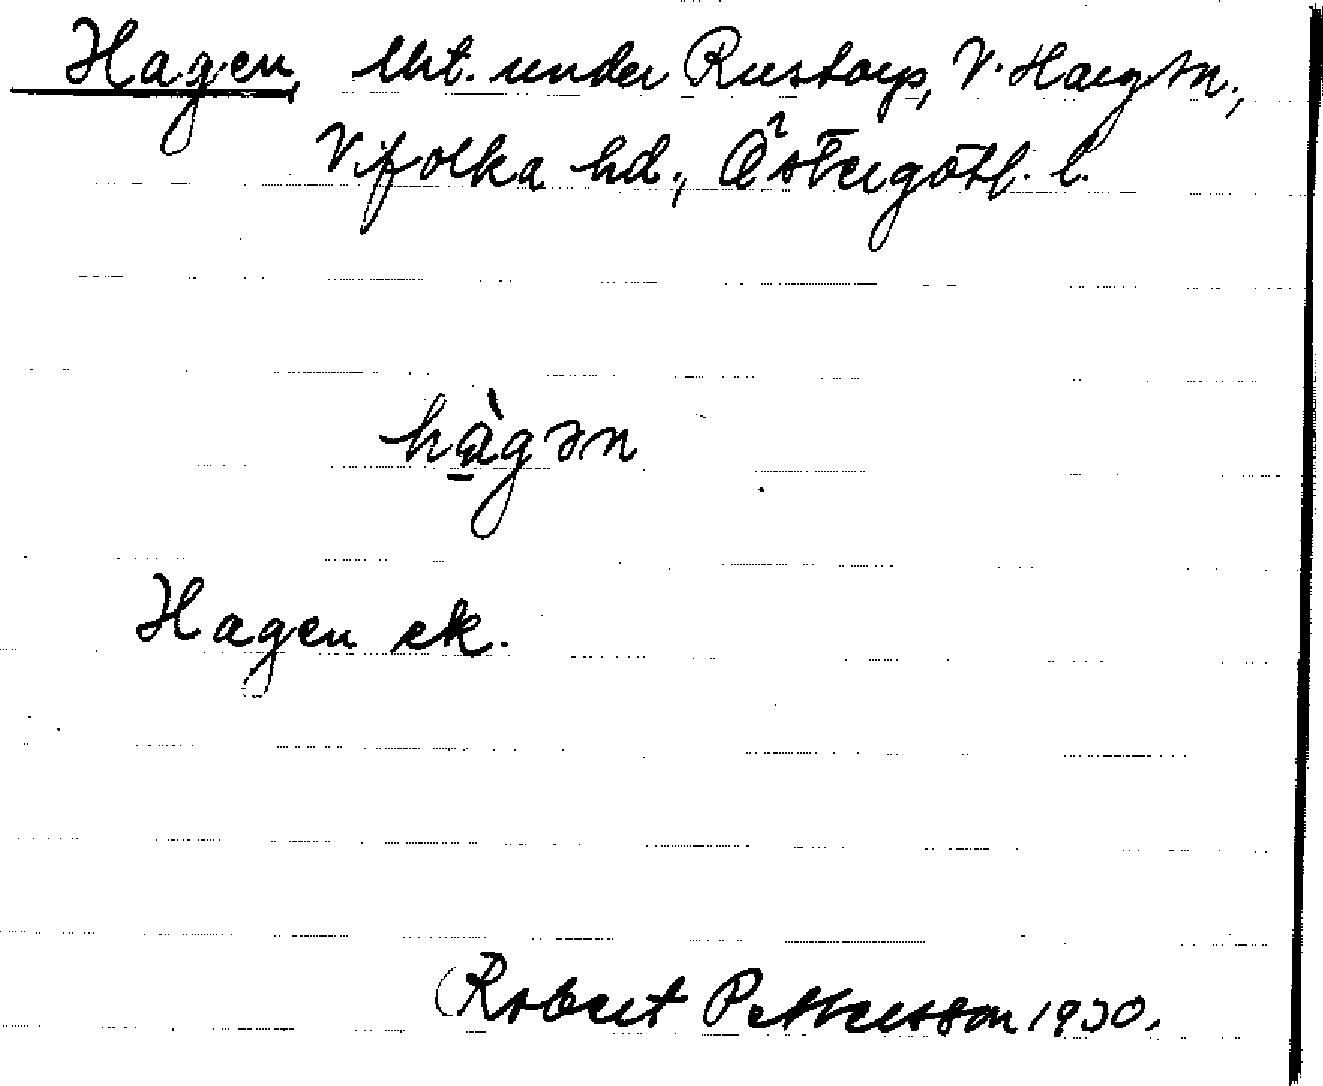 Hagen, lht. under Rustorp, V. Harg sn.,
Vifolka hd., Östergötl. l.
hàgən
Hagen ek.
(Robert Pettersson 1930.